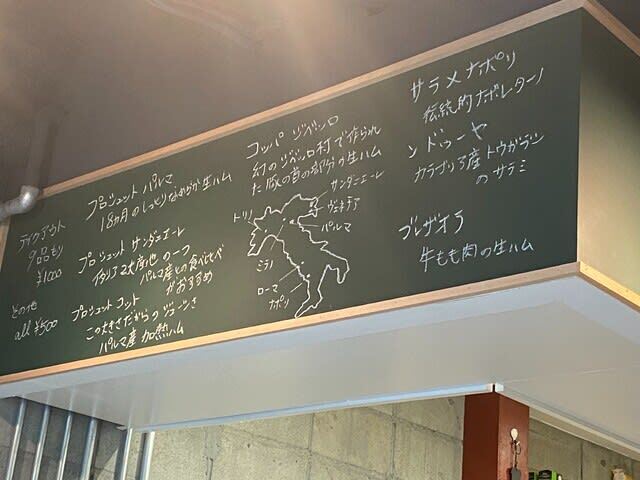 テイクアウト
9品もり
¥1000
その他
all ¥500
プロシュット パルマ
18ヵ月のしっとりなめらか生ハム
プロシュット サンダニエーレ
イタリア2大産地の一つ
パルマ産との食べ比べ
がおすすめ
プロシュット コット
この大きさだからのジューシさ
パルマ産 加熱ハム
コッパ ジベッロ
幻のジベッロ村で作られ
た豚の首の部分の生ハム
サンダニエーレ
ヴェネチア
パルマ
トリノ
ミラノ
ローマ
ナポリ
サラメ ナポリ
伝統的ナポレターノ
ンドゥーヤ
カラブリア産トウガラシ
のサラミ
ブレザオラ
牛もも肉の生ハム